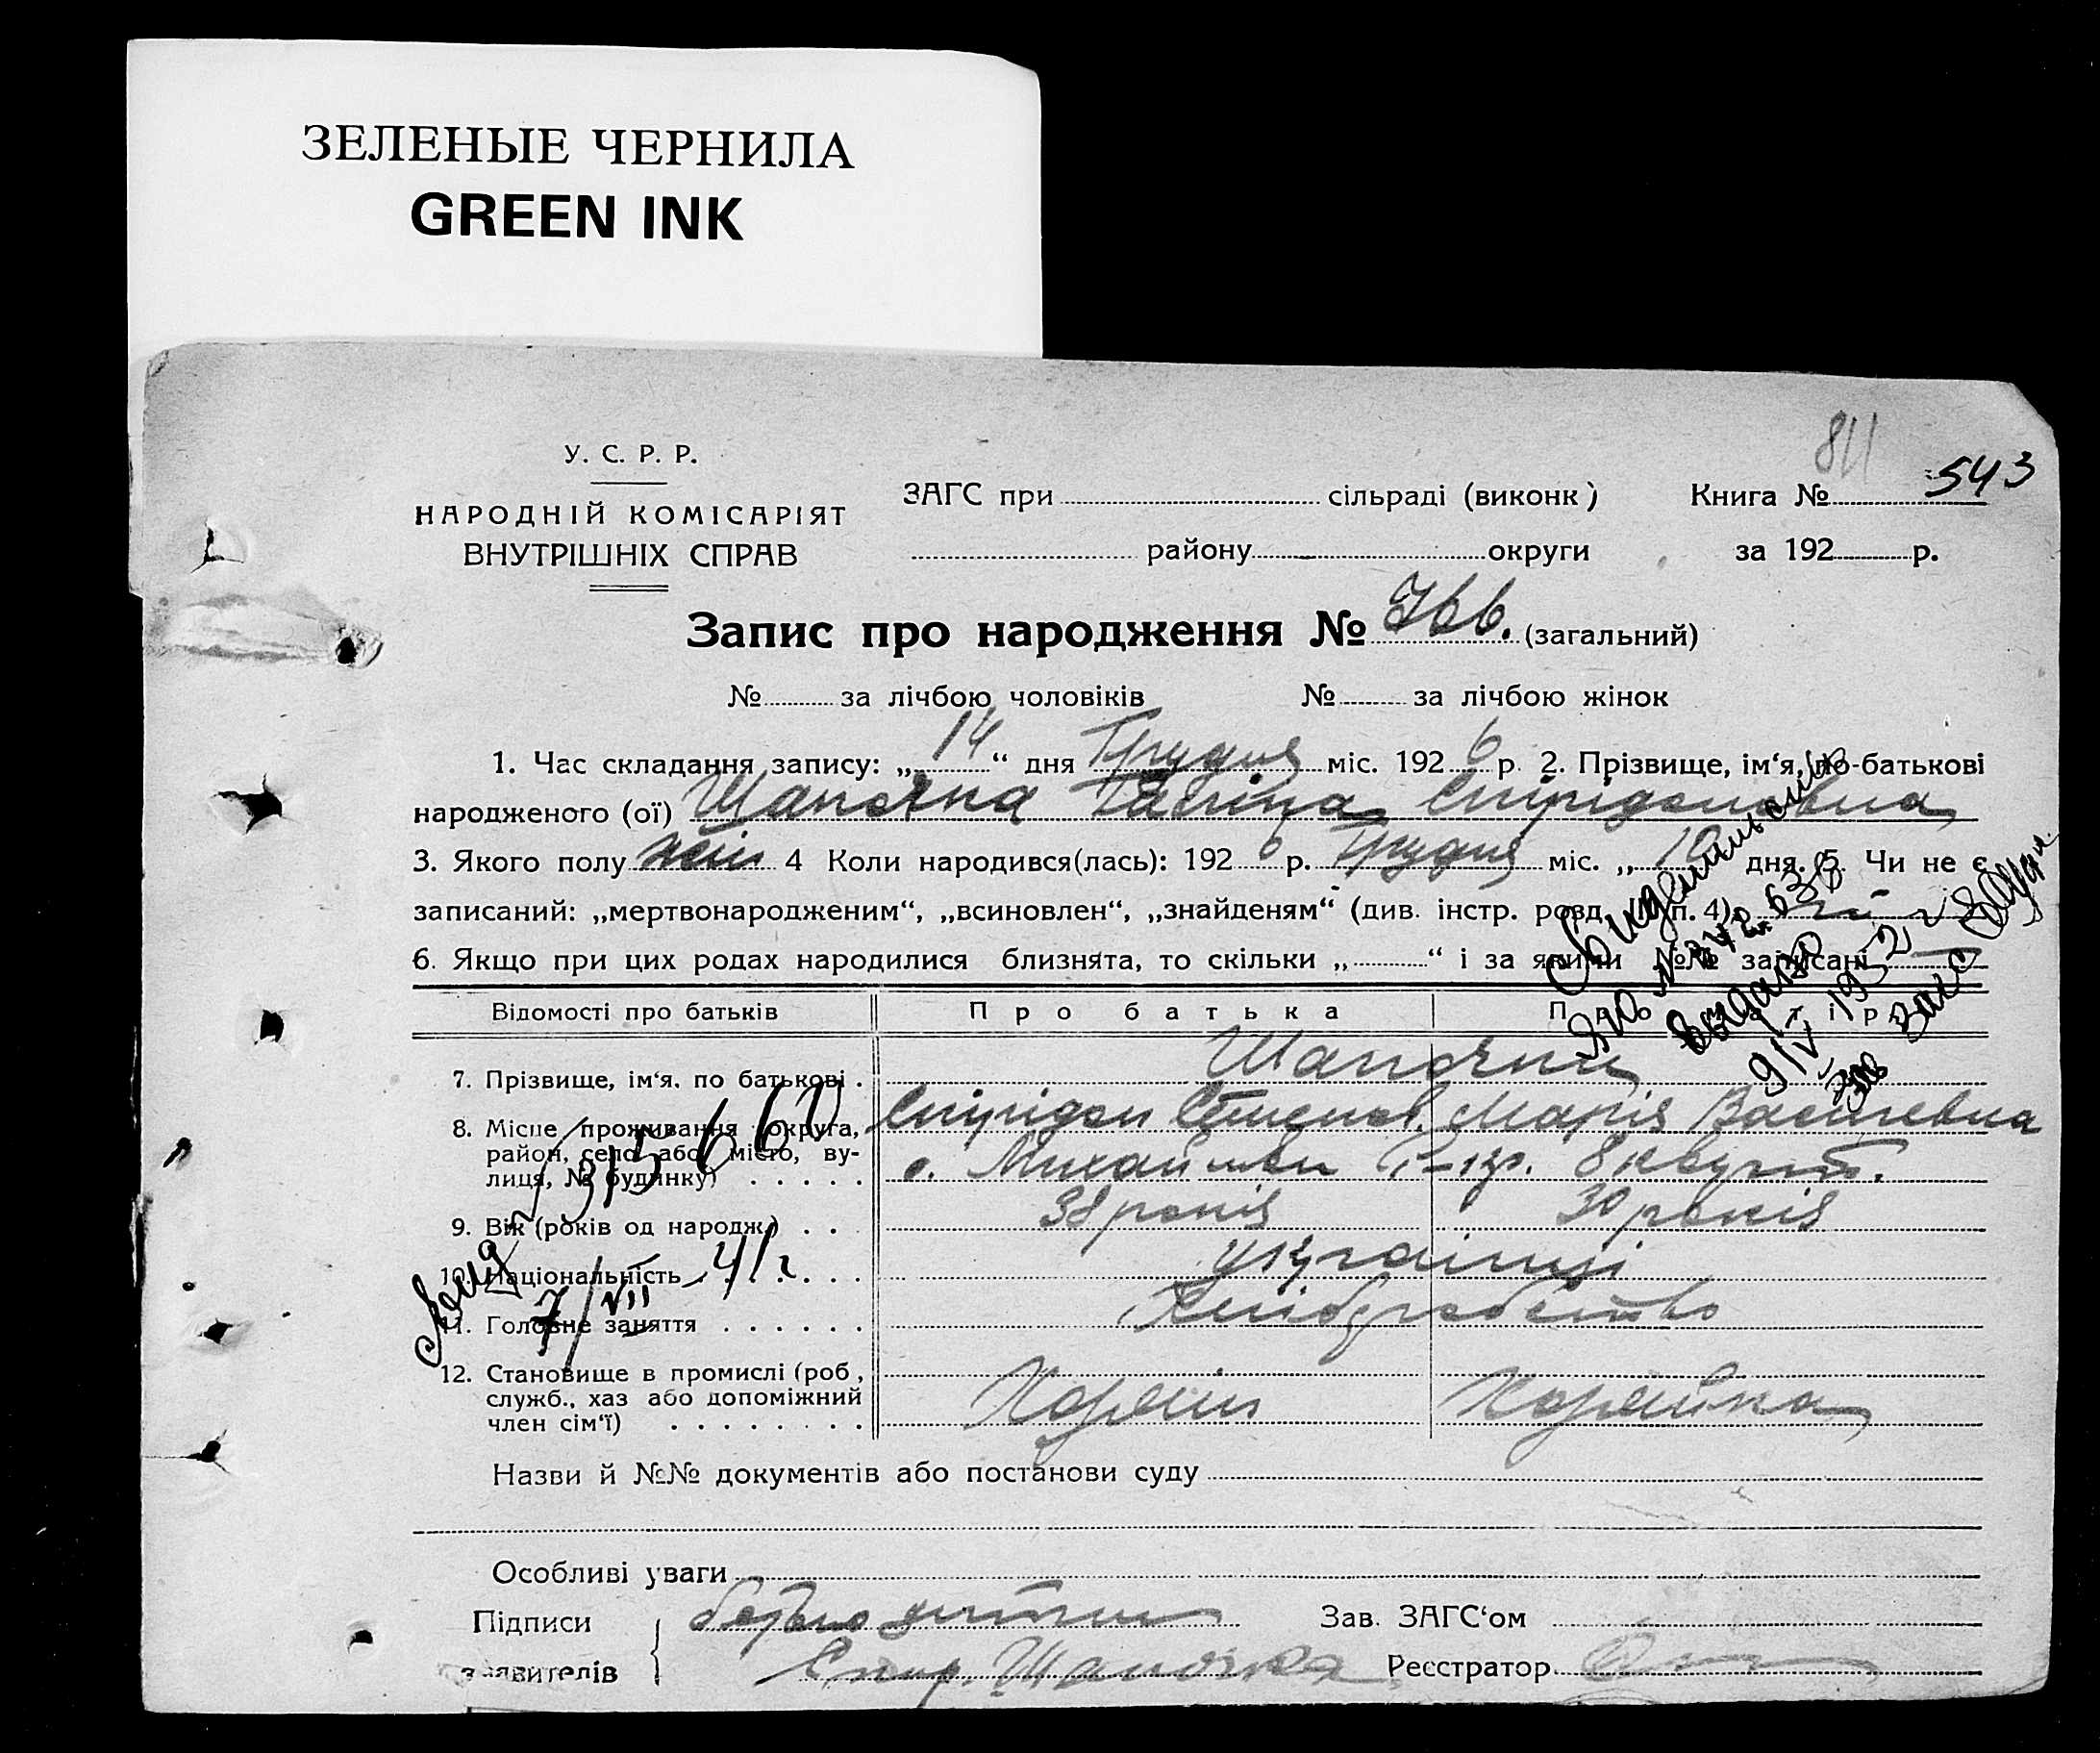 ЗЕЛЕНЫЕ ЧЕРНИЛА
GREEN INK
811
У. С. Р. Р.
НАРОДНІЙ КОМІСАРІЯТ
ВНУТРІШНІХ СПРАВ
ЗАГС при сільраді (виконк)
Книга № 543
району округи
за 192 р.
Запис про народження № 766. (загальний)
№ за лічбою чоловіків № за лічбою жінок
1. Час складання запису: „14“ дня Грудня міс. 1926 р. 2. Прізвище, ім‘я, по-батькові
народженого (ої) Шапочка Галіна Спірідоновна
3. Якого полу жін 4 Коли народився(лась): 1926 р. Грудня міс. „10 дня. 5. Чи не є
записаний: „мертвонародженим“, „всиновлен“, „знайденям“ (див. інстр. розд. п. 4) ні
6. Якщо при цих родах народилися близнята, то скільки „ “ і за якими №№ записані
Свидетельство
ЯЮ № 342636
выдано
9/V 1952 г
Зав Загс
Відомості про батьків Про батька Про матір
7. Прізвище, ім‘я, по батькові . Шапочки
Спірідон Степнов. Марія Василевна
8. Місце проживання (округа,
район, село або місто, ву-
лиця, № будинку) . . . . .
с. Михайлівки 8 кварт.
9. Вік (років од народж.) . . 38 років 30 років
10. Національність . . . . . . . українці
11. Головне заняття . . . . . . Хліборобство
12. Становище в промислі (роб,
служб., хаз або допоміжний
член сім‘ї) . . . . . . . .
Хозяїн Хозяйка
Свид № 315660
7/VII 41 г.
Назви й №№ документів або постанови суду
Особливі уваги
Підписи
заявителів
батько дитини
Спир. Шапочка
Зав. ЗАГС‘ом
Реєстратор